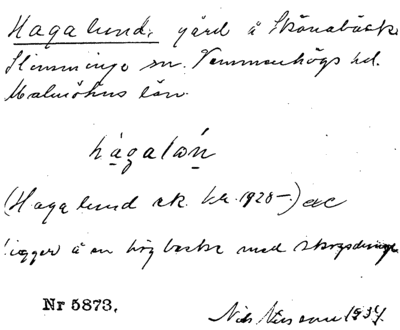 Hagalund, gård å Skönabäck
Slimminge sn. Vemmenhögs hd.
Malmöhus län.
hagalɯn
(Hagalund ek. ka. 1928-)
ligger å en hög backe med
Nr 5873.
Nils Nilsson 1934.